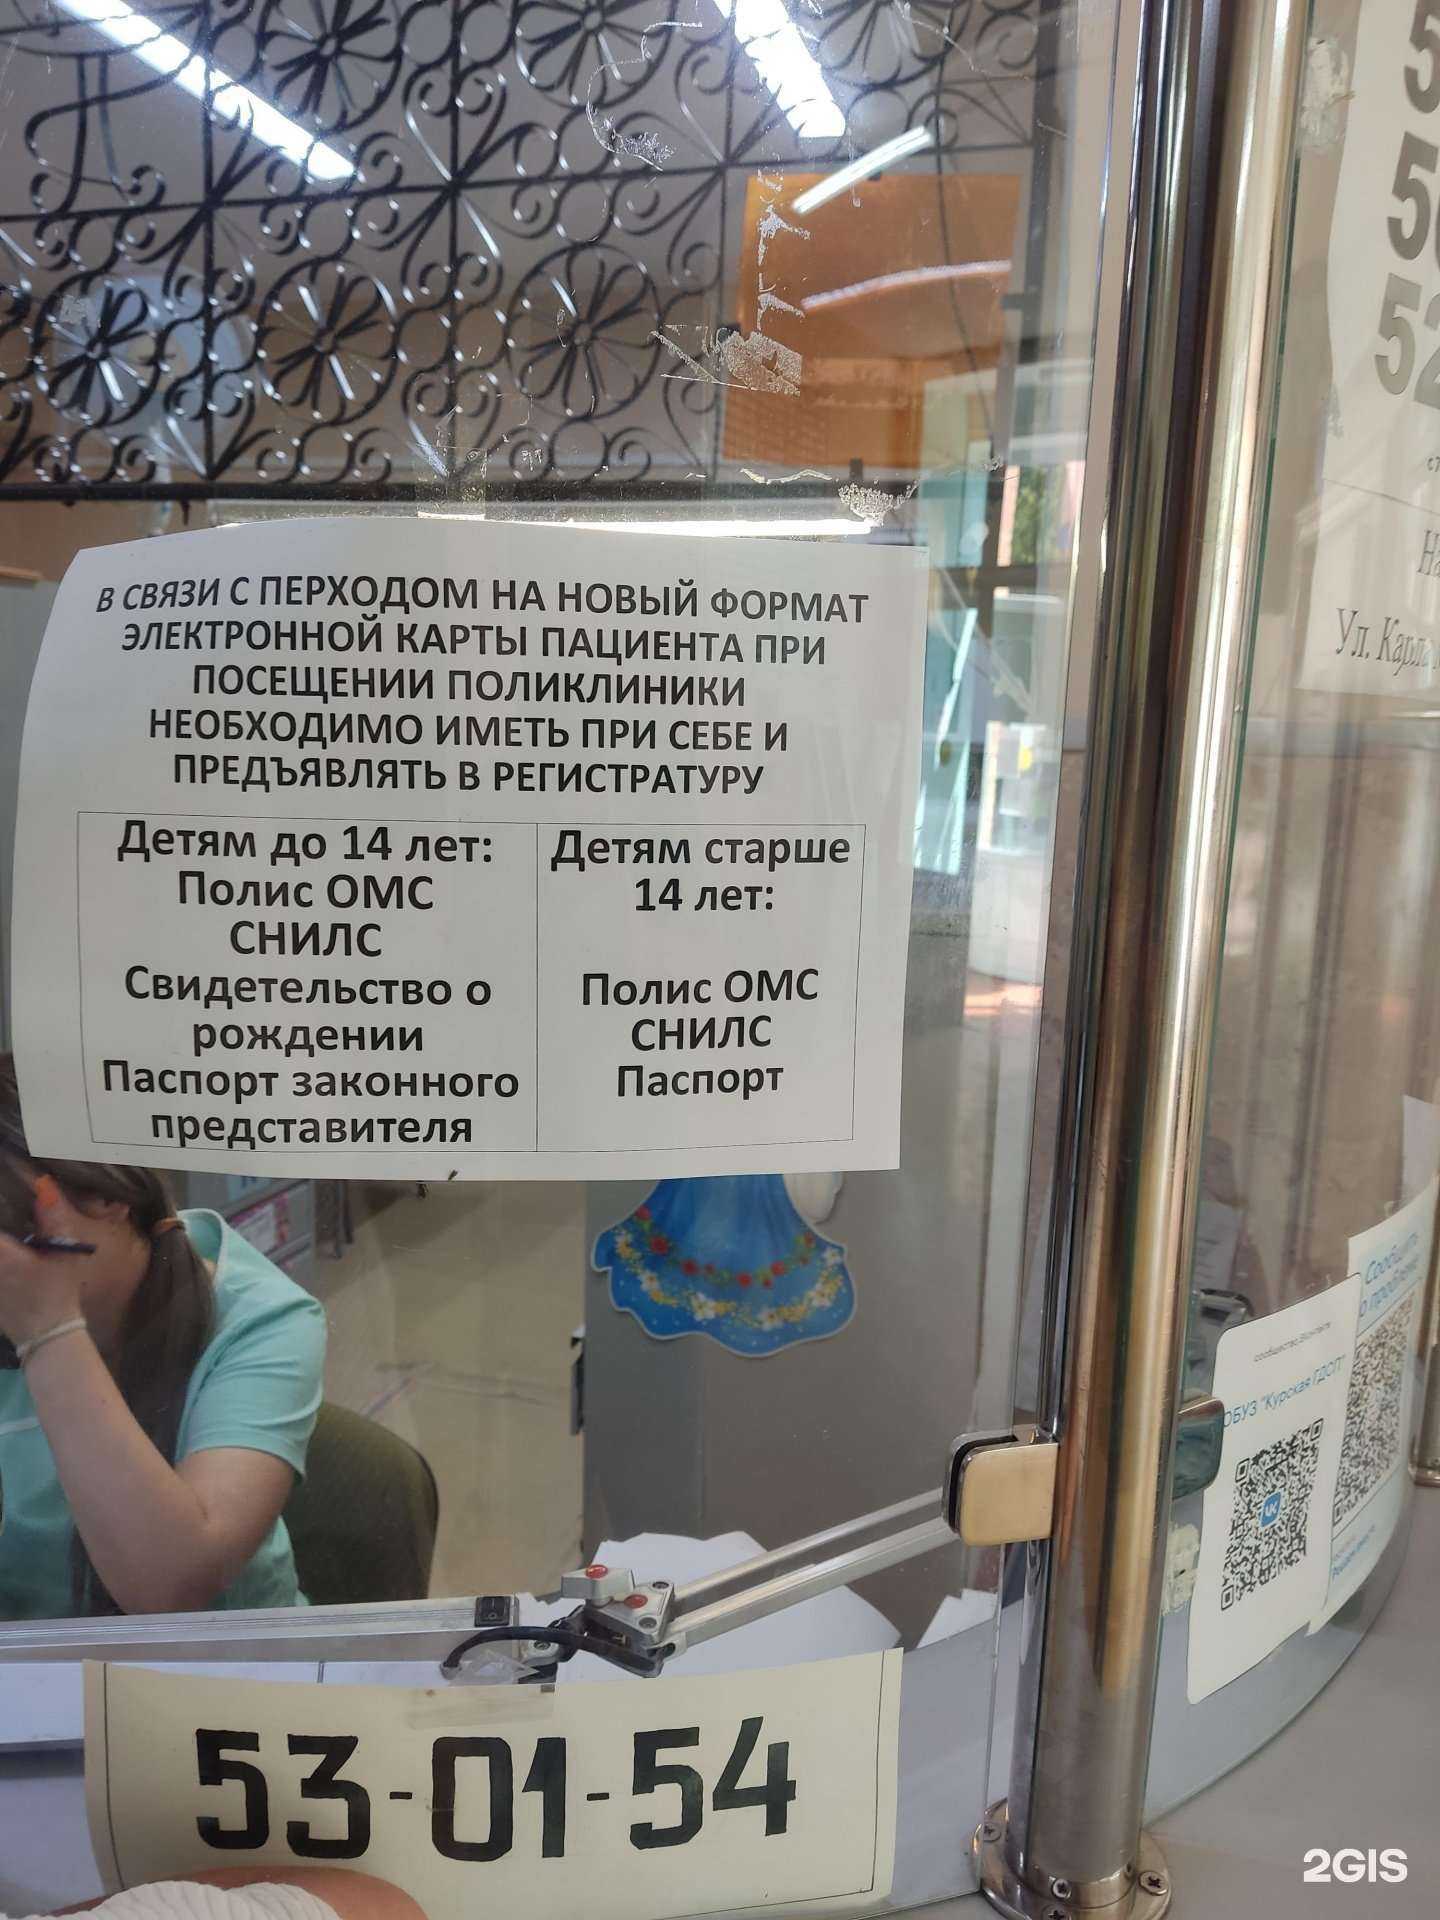 В СВЯЗИ С ПЕРХОДОМ НА НОВЫЙ ФОРМАТ
ЭЛЕКТРОННОЙ КАРТЫ ПАЦИЕНТА ПРИ
ПОСЕЩЕНИИ ПОЛИКЛИНИКИ
НЕОБХОДИМО ИМЕТЬ ПРИ СЕБЕ И
ПРЕДЪЯВЛЯТЬ В РЕГИСТРАТУРУ
Детям до 14 лет:
Полис ОМС
СНИЛС
Свидетельство о
рождении
Паспорт законного
представителя
Детям старше
14 лет:
Полис ОМС
СНИЛС
Паспорт
53-01-54
Ул.
Сообщить
о проблеме
сообщество ВКонтакте
ОБУЗ "Курская ГДСП"
2GIS